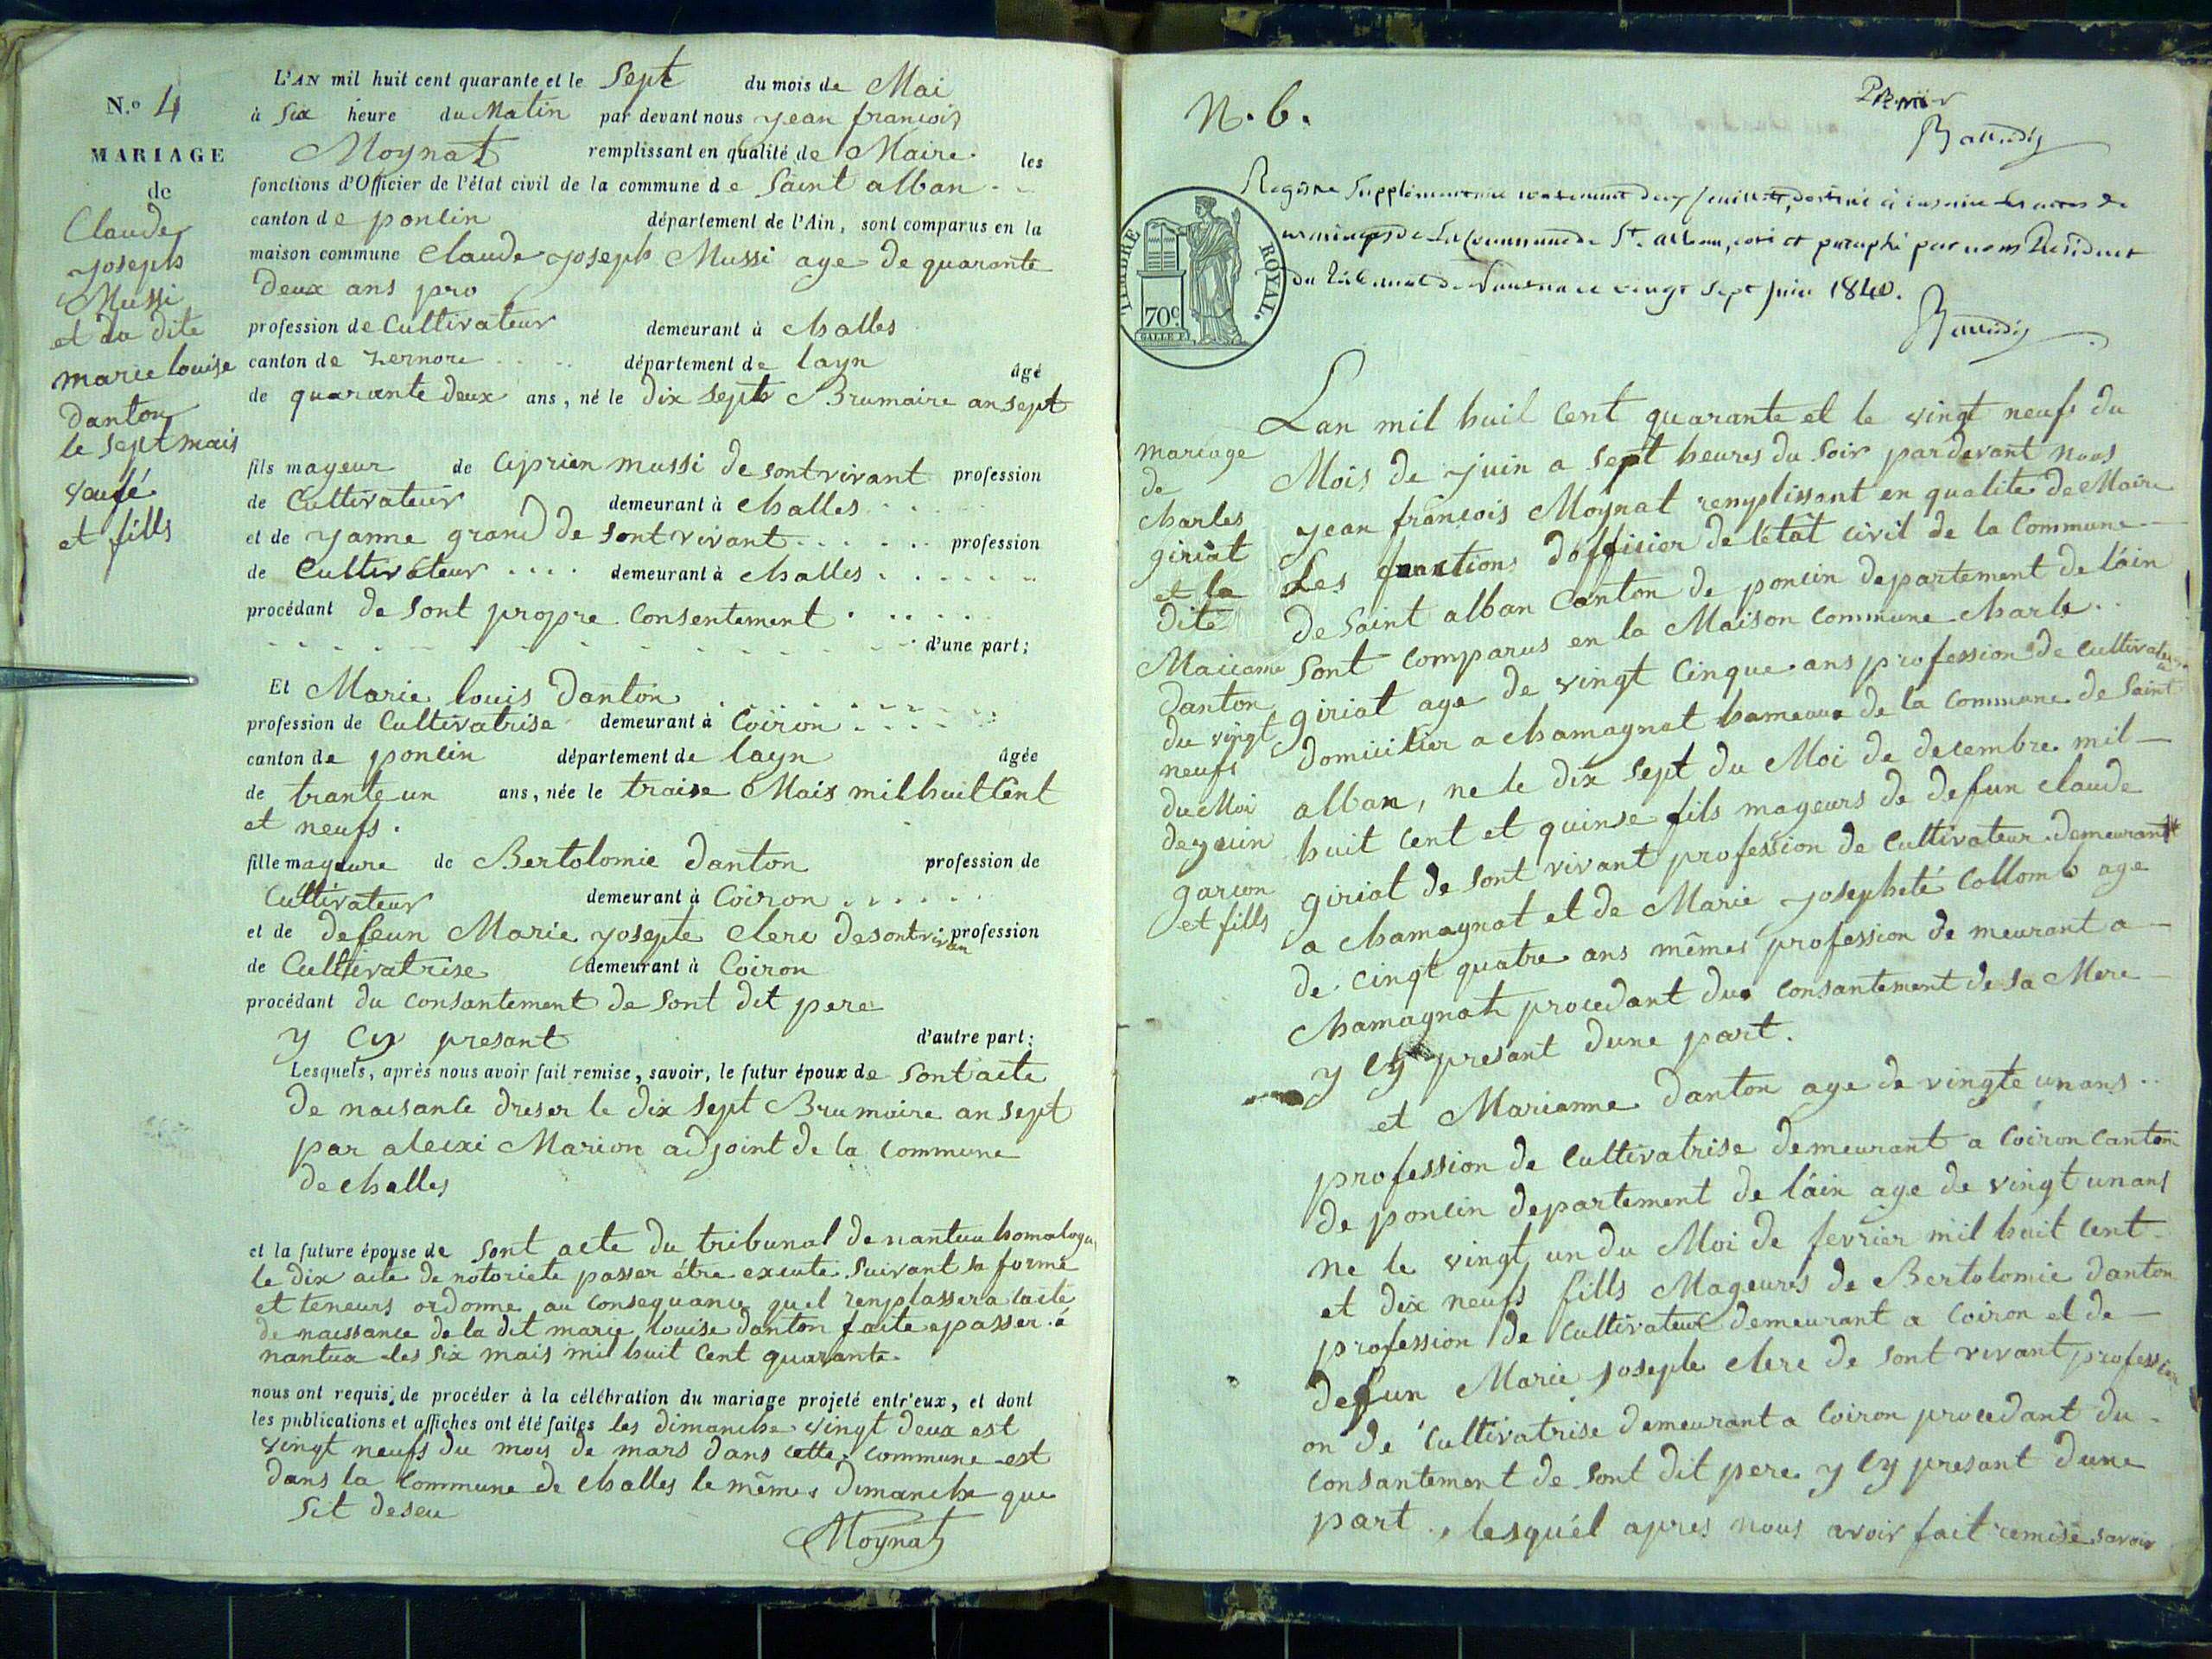 N.o 4
MARIAGE
de
Claude
joseph
Mussi
et da dite
marie louise
danton
le sept mais
veufé
et fills
L'AN mil huit cent quarante et le Sept du mois de Mai
à Six heure du Matin par devant nous jean francois
Moynat remplissant en qualité de Maire les
fonctions d'Officier de l'état civil de la commune de Saint alban
canton de poncin département de l'Ain, sont comparus en la
maison commune Claude joseph Mussi age de quarante
deux ans pro
profession de Cultivateur demeurant à challes
canton de Zernore département de layn âgé
de quarante deux ans, né le dix sept Brumaire an sept
fils mayeur de Ciprien mussi de sont vivant profession
de Cultivateur demeurant à challes
et de Janne grand de sont vivant profession
de Cultivateur demeurant à challes
procédant de sont propre consentement
d'une part;
Et Marie louis danton
profession de Cultivatrise demeurant à Coiron
canton de poncin département de layn âgée
de trante un ans, née le traise Mais mil huit Cent
et neufs.
fille mayeure de Bertolomie danton profession de
Cultivateur demeurant à Coiron
et de defeun Marie josepte clerc de sont vivan profession
de Cultivatrise demeurant à Coiron
procédant du consantement de sont dit pere
y Cy presant d'autre part;
Lesquels, après nous avoir fait remise, savoir, le futur époux de Sont acte
de naisance dreser le dix sept Brumaire an sept
par alexi Marion adjoint de la commune
de challes
et la future épouse de sont acte du tribunal de nantua homologu
le dix acte de notoriete passer étre excute suivant sa forme
et teneurs ordonne au consequance quel remplassera lacte
de naissance de la dit marie louise danton faite epasser a
nantua les six mais mil huit Cent quarante.
nous ont requis de procéder à la célébration du mariage projeté entr'eux, et dont
les publications et affiches ont été faites les dimanche vingt deux est
vingt neufs du mois de mars dans cette commune est
dans la commune de challes le mêmes dimanche que
sit deseu
Moynat
N. 6.
Premier
Registre Supplémentaire contenant deux feuillets, destiné à inscrire les actes de
mariages de La Commune de St. alban, coté et paraphé par nous Président
du Tribunal de Nantua ce vingt Sept juin 1840.
TIMBRE ROYAL.
70c
mariage
de
charles
giriat
et la
dite
Mariane
danton
du vingt
neufs
du Moi
de juin
garcon
et fills
Lan mil huil Cent quarante et le vingt neufs du
Mois de juin a sept heures du soir pardevant nous
jean francois Moynat remplissant en qualite de Maire
Les fonctions dofficier de létat civil de la Commune
de Saint alban Canton de poncin departement de láin
sont comparus en la Maison Commune Charle
giriat age de vingt Cinque ans profession de cultivateur
domicilier a chamagnat hameaux de la Commune de Saint
alban, ne le dix sept du Moi de decembre mil
huit Cent et quinse fils mayeurs de defun claude
giriat de sont vivant profession de Cultivateur demeurant
a chamagnat et de Marie josepheté Collomb age
de cinqt quatre ans mêmes profession de meurant a
chamagnat procedant du consantement de sa Mere
y cy presant dune part.
et Marianne danton age de vingte un ans
profession de Cultivatrise demeurant a Coiron Canton
de poncin departement de láin age de vingt un ans
ne le vingt un du Moi de fevrier mil huit Cent
et dix neufs fills Mageurs de Bertolomie danton
profession de Cultivateur demeurant a Coiron et de
defun Marie joseple clerc de sont vivant professi
on de Cultivatrise demeurant a Coiron procedant du
consantement de sont dit pere y Cy presant dune
part., lesquél apres nous avoir fait remise savoir